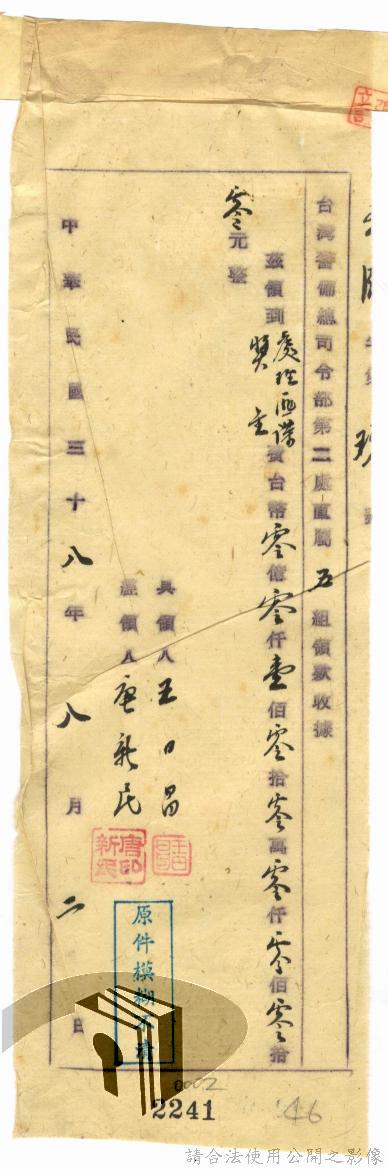 台灣警備總司令部第二處直屬五組領款收據
茲領到處理匪諜獎金費台幣零億零仟壹佰零拾零萬零仟零佰零拾
零元整
具領人 王日昌
經領人 唐新民
唐印新民
中華民國三十八年八月二日
原件模糊不清
0002
2241
46
請合法使用公開之影像